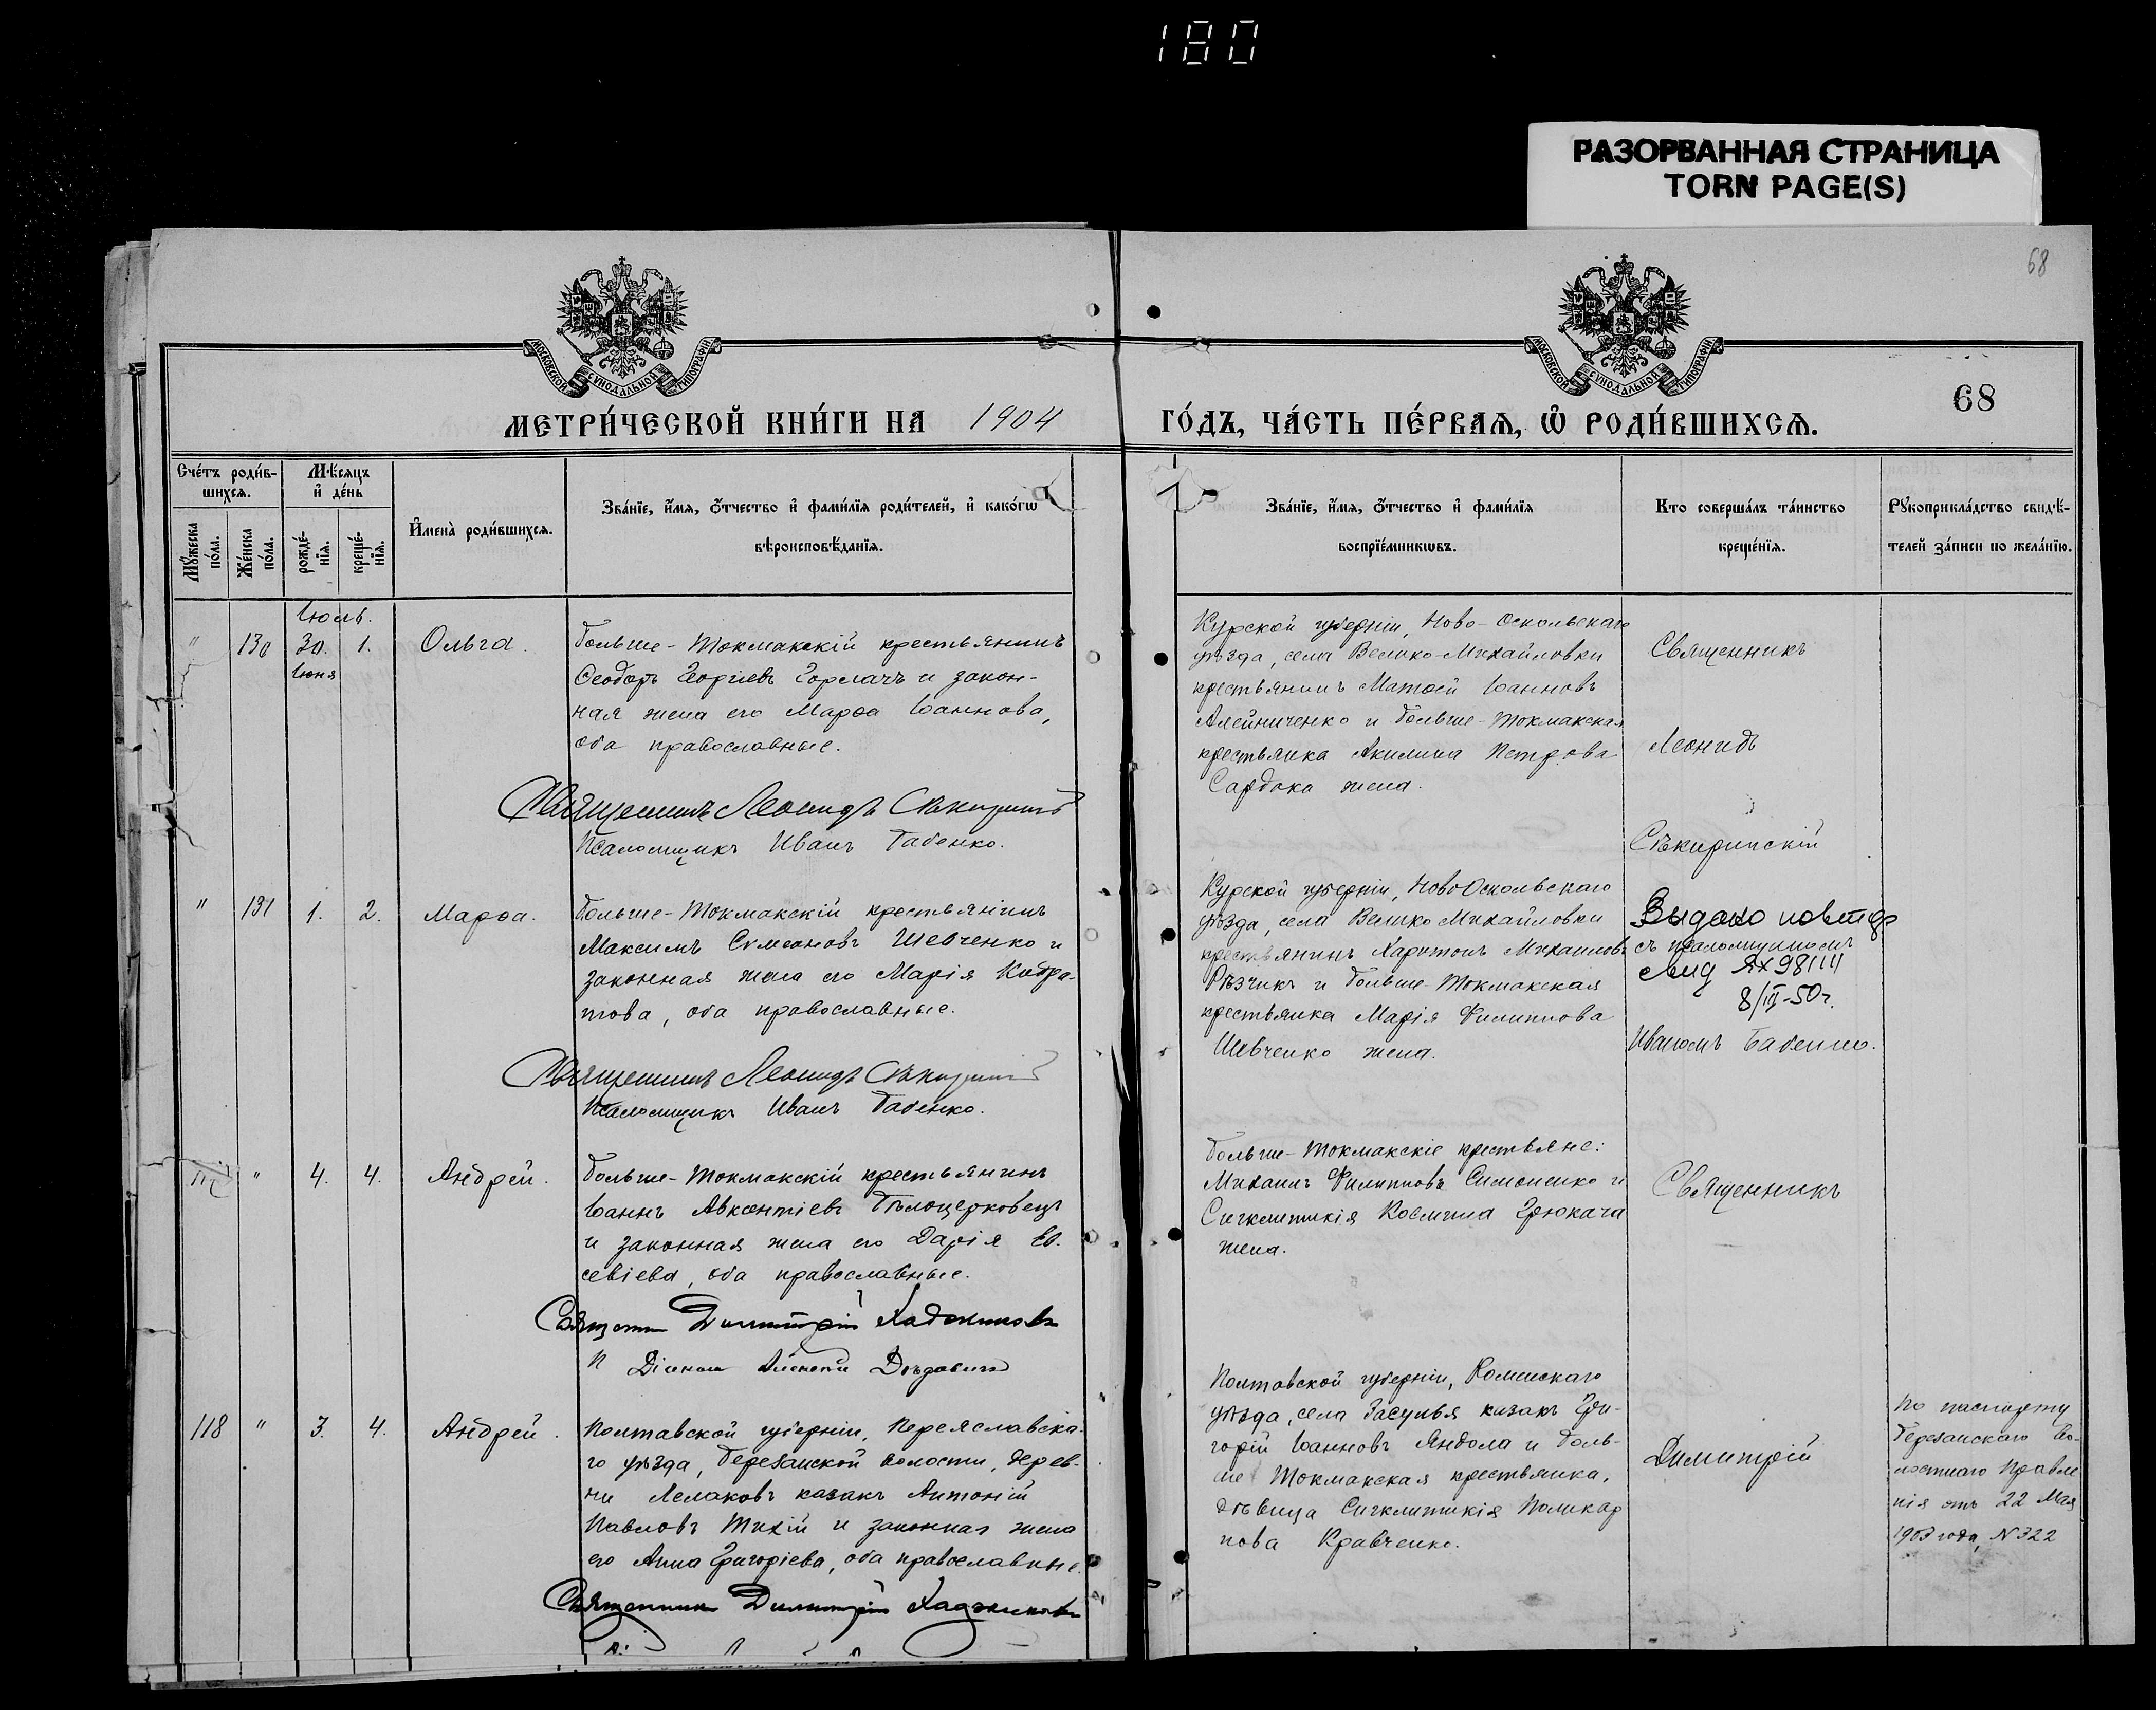 180
РАЗОРВАННАЯ СТРАНИЦА
TORN PAGE(S)
68
МОСКОВСКОЙ СѴНОДАЛЬНОЙ ТИПОГРАФІИ
МОСКОВСКОЙ СѴНОДАЛЬНОЙ ТИПОГРАФІИ
МЕТРИ́ЧЕСКОЙ КНИ́ГИ НА 1904
ГО́ДЪ, ЧА́СТЬ ПЕ́РВАЯ, Ѡ҆ РОДИ́ВШИХСЯ.
68
Сче́тъ роди́в-
шихся.
Мꙋ́жеска по́ла.
Же́нска по́ла.
Мѣ́сяцъ
и҆ де́нь
рожде́-
нїя.
креще́-
нїя.
И҆мена̀ роди́вшихся.
Зва́нїе, и҆́мя, ѻ҆́тчество и҆ фами́лїя роди́телей, и҆ како́гѡ
вѣроисповѣ́данїя.
Зва́нїе, и҆́мя, ѻ҆́тчество и҆ фами́лїя
воспрїе́мникѡвъ.
Кто соверша́лъ та́инство
креще́нїя.
Рꙋкоприкла́дство свидѣ́-
телей за́писи по жела́нїю.
Іюль.
" 130 30. 1. Ольга.
Іюня
Больше-Токмакскій крестьянинъ
Ѳеодоръ Георгіевъ Горлачъ и закон-
ная жена его Марѳа Іоаннова,
оба православные.
Священникъ Леонидъ Сѣкирскій
Псаломщикъ Иванъ Бабенко.
Курской губерніи, Ново-Оскольскаго
уѣзда, села Велико-Михайловки
крестьянинъ Матѳей Іоанновъ
Алейниченко и Больше-Токмакская
крестьянка Акилина Петрова
Сардака жена.
Священникъ
Леонидъ
Сѣкиринскій
" 131 1. 2. Марѳа.
Больше-Токмакскій крестьянинъ
Максимъ Симеоновъ Шевченко и
законная жена его Марія Кодра-
това, оба православные.
Священникъ Леонидъ
Псаломщикъ Иванъ Бабенко.
Курской губерніи, Ново Оскольскаго
уѣзда, села Велико Михайловки
крестьянинъ Харитонъ Михаиловъ
Рѣзчикъ и Больше-Токмакская
крестьянка Марія Филиппова
Шевченко жена.
Выдано повтор
съ псаломщикомъ
свид ЯХ 98111
8/III-50г.
Иваномъ Бабенко.
" 4. 4. Андрей.
Больше-Токмакскій крестьянинъ
Іоаннъ Авксентіевъ Бѣлоцерковецъ
и законная жена его Дарія Ев-
севіева, оба православные.
Димитрій Хаджиновъ
Больше-Токмакскіе крестьяне:
Михаилъ Филипповъ Симоненко и
Сигклитикія Космина Грюкача
жена.
Священникъ
118 " 3. 4. Андрей.
Полтавской губерніи, Переяславска-
го уѣзда, Березанской волости, дерев-
ни Лелаковъ казакъ Антоній
Павловъ Тихій и законная жена
его Анна Григоріева, оба православные.
Священникъ Димитрій Хаджиновъ
Полтавской губерніи, Роменскаго
уѣзда, села Засулья казакъ Гри-
горій Іоанновъ Яндола и Боль-
ше Токмакская крестьянка,
дѣвица Сигклитикія Поликар
пова Кравченко.
Димитрій
По паспорту
Березанскаго Во-
лостнаго Правле
нія отъ 22 Мая
1903 года, N 322